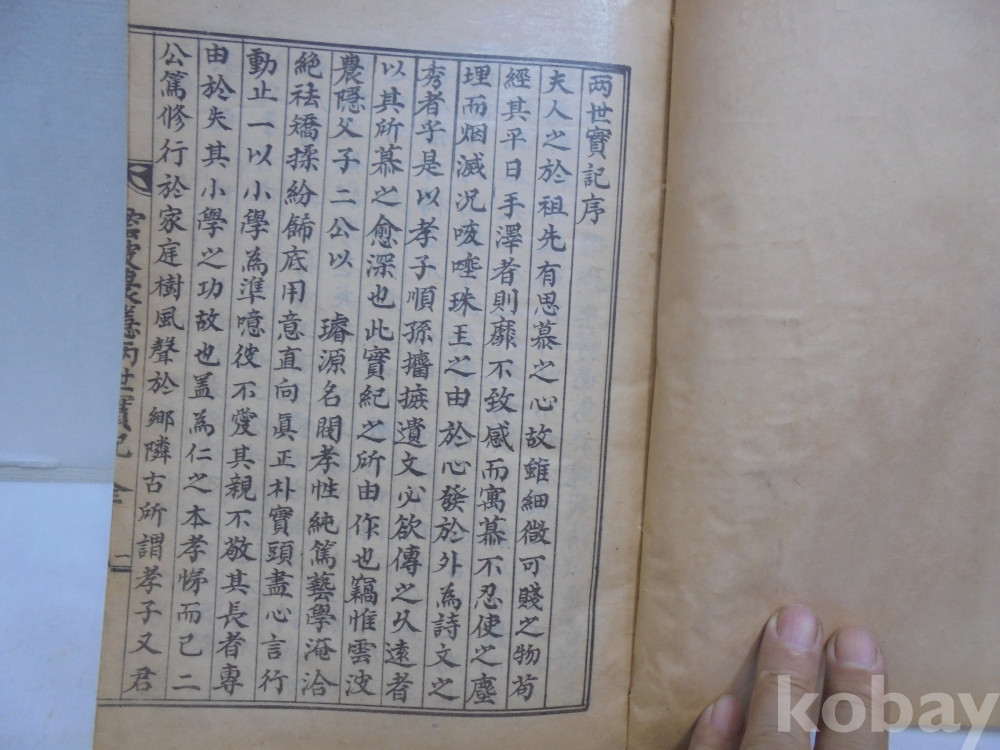 兩世實記序
夫人之於祖先有思慕之心故雖細微可賤之物苟
經其平日手澤者則靡不致感而寓慕不忍使之塵
埋而烟滅況咳唾珠玉之由於心發於外為詩文之
秀者乎是以孝子順孫攟摭遺文必欲傳之久遠者
以其所慕之愈深也此實紀之所由作也竊惟雲波
農隱父子二公以 璿源名閥孝性純篤藝學淹洽
絶祛矯揉紛飾底用意直向眞正朴實頭盡心言行
動止一以小學為準噫彼不愛其親不敬其長者專
由於失其小學之功故也盖為仁之本孝悌而已二
公篤修行於家庭樹風聲於鄉隣古所謂孝子又君
雲波農隱兩世實記 全 一
kobay